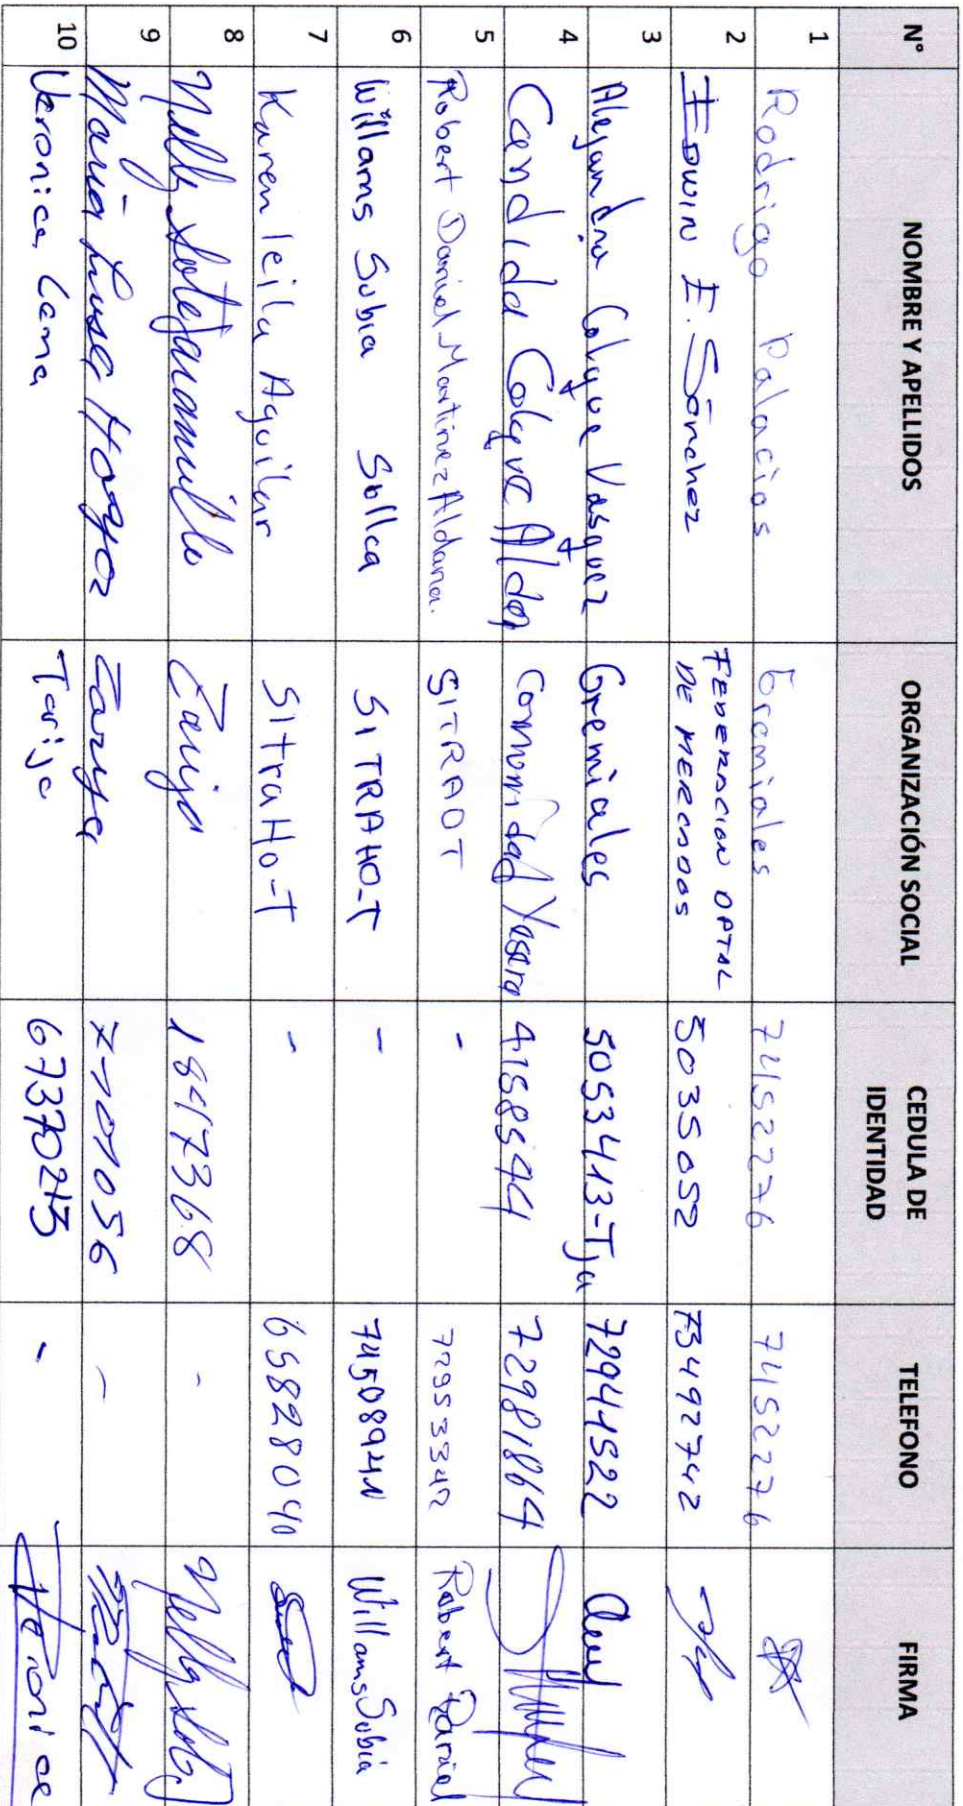 N° NOMBRE Y APELLIDOS ORGANIZACIÓN SOCIAL CEDULA DE IDENTIDAD TELEFONO FIRMA
1 Rodrigo Palacios Gremiales 74152276 74152276
2 Edwin E. Sánchez FEDERACION DPTAL DE MERCADOS 5035052 73492742
3 Alejandra Colque Vasquez Gremiales 5053413-Tja 72944522
4 Candida Colque Comunidad Yesera 4158544 72981864
5 Robert Daniel Martinez Aldana. SITRAOT - 72953342 Robert Daniel
6 Willams Subia Sullca SITRAHO-T - 74508941 Willams Subia
7 Karen leila Aguilar SitraHo-T - 65828040
8 Nelly Tarija 1847368 - Nelly
9 Maria Luisa Hoyos Tarija - 
10 Veronica Lema Tarija 67370213 - Veronica